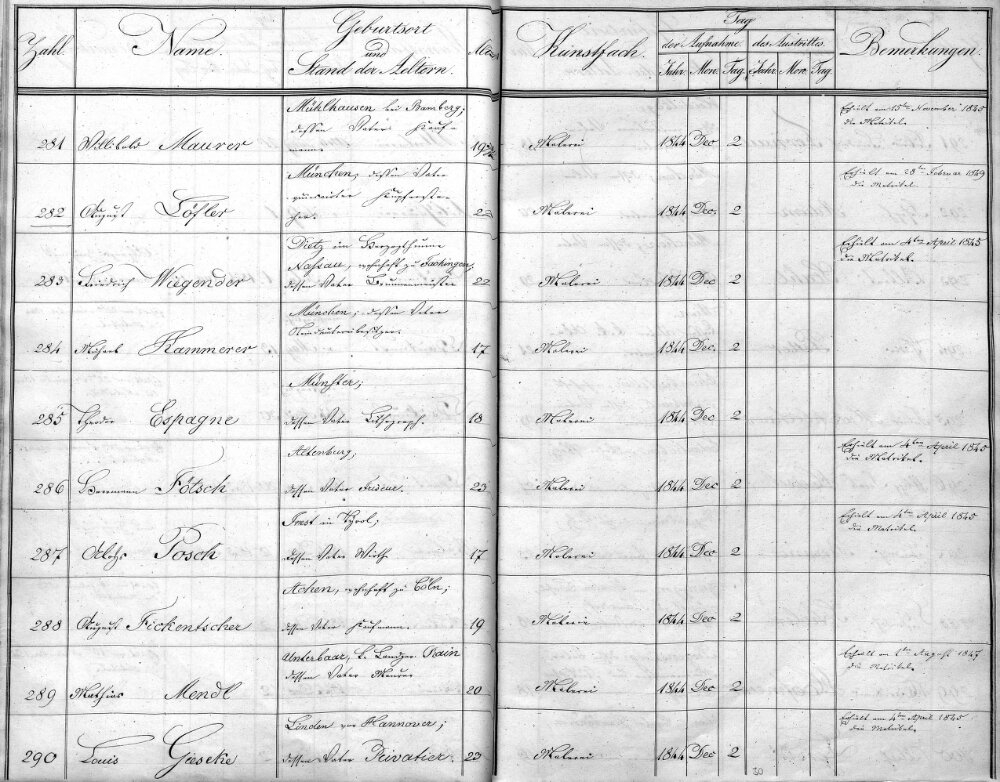 Zahl. Name. Geburtsort und Stand der Aeltern. Kunstfach. Tag Bemerkungen.
der Aufnahme. des Austrittes.
Jahr Mon. Tag. Jahr. Mon. Tag.
Mühlhausen bei Bamberg; Erhielt am 15ten November 1845
dessen Vater Kauf- die Matrikel.
281 Maurer mann. 19 Malerei 1844 Dec 2
München, dessen Vater Erhielt am 28ten Februar 1849
die Matrikel
282 August Löfler 22 Malerei 1844 Dec. 2
Dietz im Herzogthume Erhielt am 4ten April 1845
Nassau, wohnhaft zu die Matrikel.
283 Friedrich Wiegender dessen Vater 22 Malerei 1844 Dec. 2
München; dessen Vater
284 Kammerer 17 Malerei 1844 Dec. 2
Münster;
285 Theodor Espagne dessen Vater Lithograph. 18 Malerei 1844 Dec 2
Altenburg; Erhielt am 4ten April 1845
die Matrikel.
286 Herrmann Fötsch dessen Vater Friseur. 23 Malerei 1844 Dec 2
Imst in Tyrol; Erhielt am 4ten April 1845
die Matrikel.
287 Aloys Posch dessen Vater Wirth 17 Malerei 1844 Dec 2
Achen, wohnhaft zu Cöln;
288 August Fickentscher dessen Vater Kaufmann. 19 Malerei 1844 Dec 2
Unterbaar, k. Landger. Rain Erhielt am August 1847
dessen Vater Maurer die Matrikel.
289 Mathias Mendl 20 Malerei 1844 Dec 2
Linden vor Hannover; Erhielt am 4ten April 1845
die Matrikel.
290 Louis Giesecke dessen Vater Privatier. 23 Malerei 1844 Dec 2